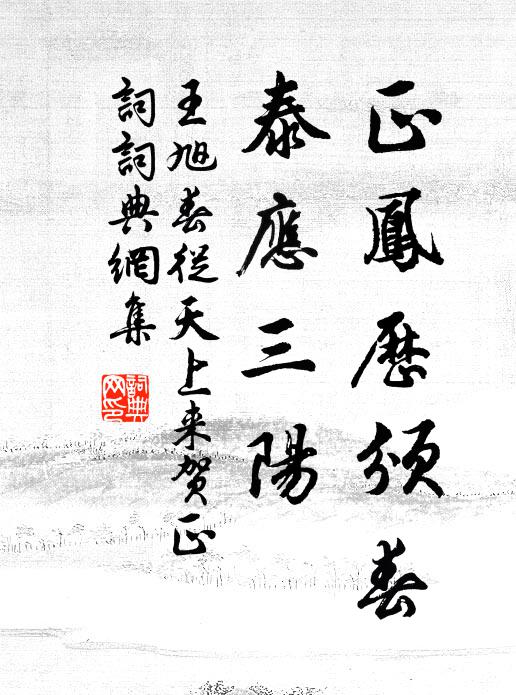 正鳳歷頒春
泰應三陽
王旭春從天上来賀正
詞詞典網集
詞典网印